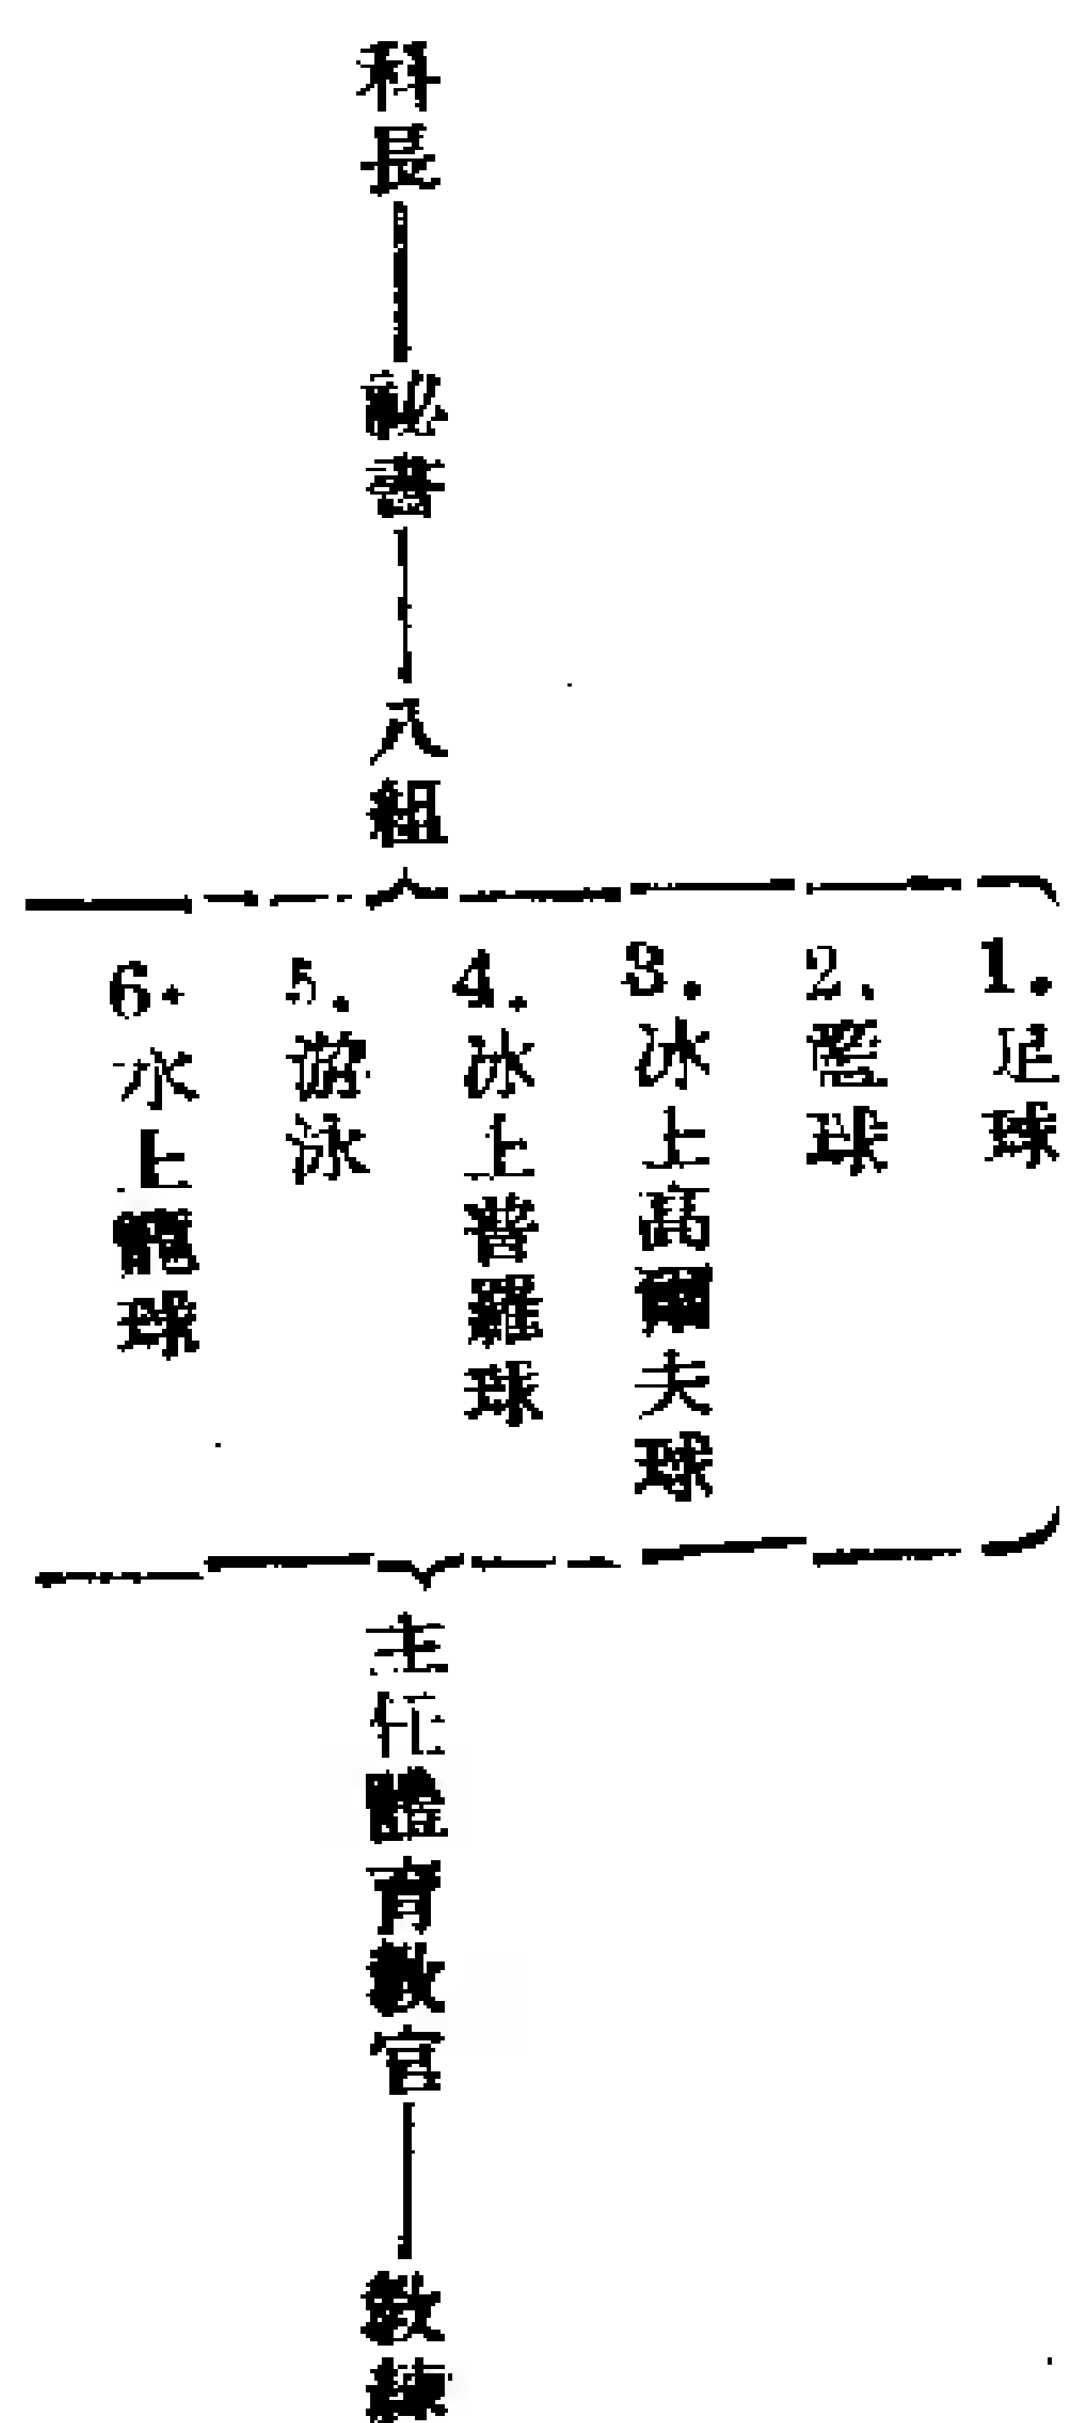 科長——秘書——八組
1.足球
2.籃球
3.冰上高爾夫球
4.冰上普羅球
5.游泳
6.水上籠球
主任體育教官——教練